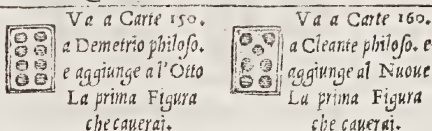 Va a Carte 150.
a Demetrio philoso.
e aggiunge a l'Otto
La prima Figura
che cauerai.
Va a Carte 160.
a Cleante philoso. e
aggiunge al Nuoue
La prima Figura
che cauerai.